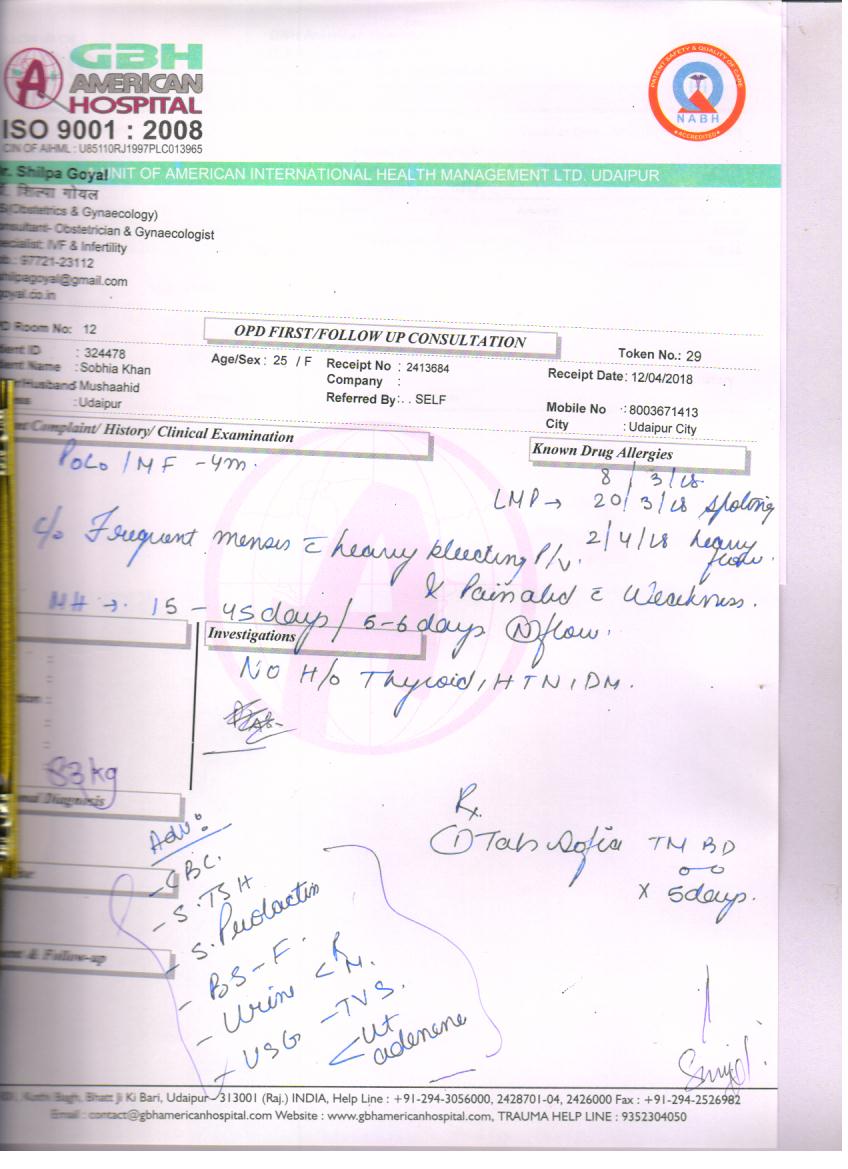 GBH
AMERICAN
HOSPITAL
ISO 9001 : 2008
CIN OF AIHML : U85110RJ1997PLC013965
PATIENT SAFETY & QUALITY OF CARE
NABH
ACCREDITED
UNIT OF AMERICAN INTERNATIONAL HEALTH MANAGEMENT LTD. UDAIPUR
r. Shilpa Goyal
शिल्पा गोयल
(Obstetrics & Gynaecology)
onsultant- Obstetrician & Gynaecologist
ecialist: IVF & Infertility
97721-23112
hilpagoyal@gmail.com
goyal.co.in
D Room No: 12
OPD FIRST/FOLLOW UP CONSULTATION
Token No.: 29
ient ID : 324478
Age/Sex : 25 / F
Receipt No : 2413684
Receipt Date: 12/04/2018
ient Name : Sobhia Khan
Company :
r/Husband Mushaahid
Referred By : . . SELF
Mobile No : 8003671413
ess : Udaipur
City : Udaipur City
nt Complaint/ History/ Clinical Examination
Known Drug Allergies
P0L0 / MF - 4m.
8 / 3/18
LMP → 20/3/18 spotting
2/4/18 heavy flow.
c/o Frequent menses c̄ heavy bleeding P/V.
& Pain abd c̄ Weakness.
MH → 15 - 45 days / 5-6 days (N) flow.
Investigations
No H/o Thyroid, HTN, DM.
83 kg
nal Diagnosis
Rx
① Tab Sofia TM BD
x 5 days.
Adv:
- CBC.
- S. TSH
- S. Prolactin
- BS - F.
- Urine < R M.
- USG - TVS.
< Ut adenexe
ent & Follow-up
Bhatt Ji Ki Bari, Udaipur - 313001 (Raj.) INDIA, Help Line : +91-294-3056000, 2428701-04, 2426000 Fax : +91-294-2526982
Email : contact@gbhamericanhospital.com Website : www.gbhamericanhospital.com, TRAUMA HELP LINE : 9352304050